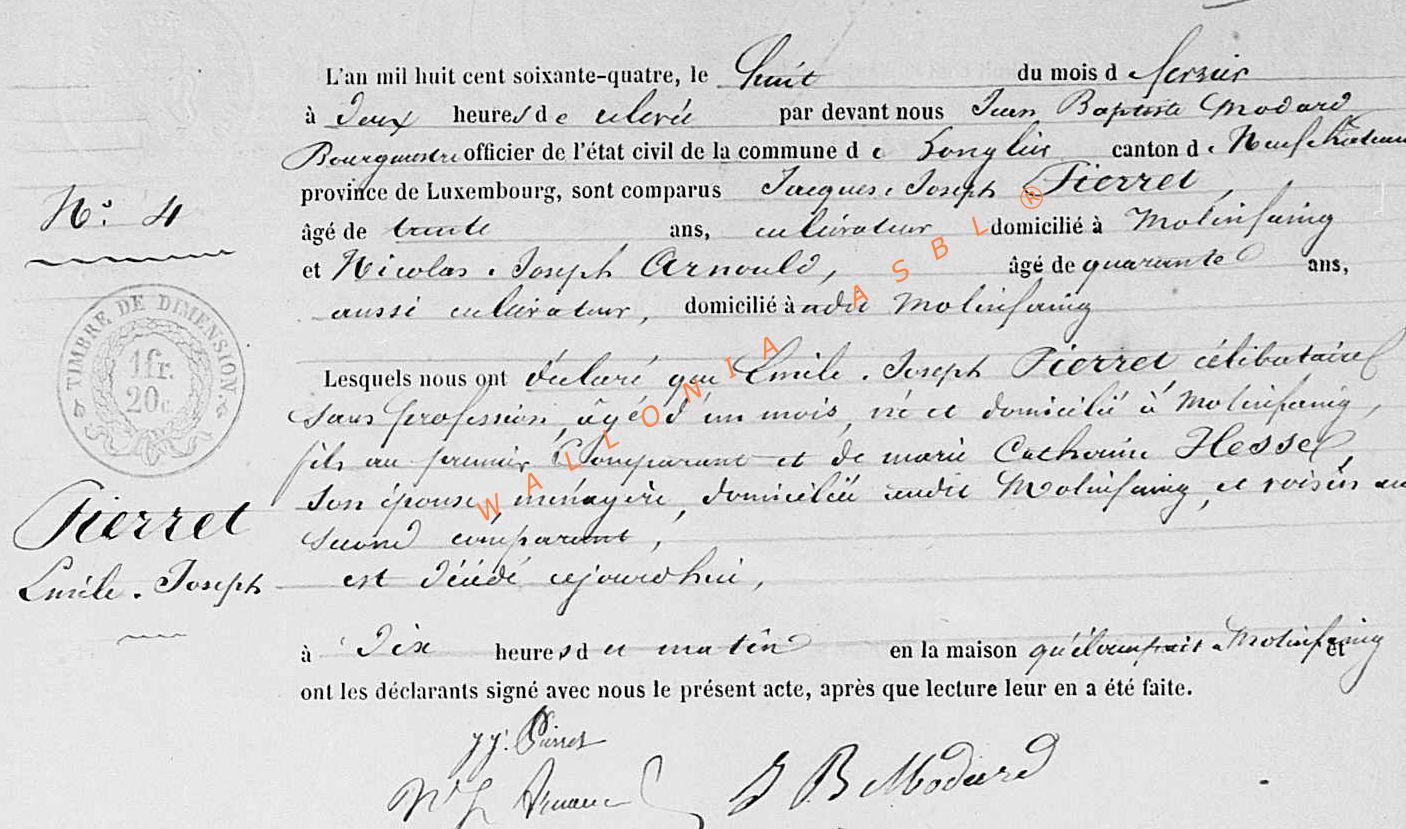 L'an mil huit cent soixante-quatre, le huit du mois de fevrier
à Deux heures de relevée par devant nous Jean Baptiste Modard
Bourgmestre officier de l'état civil de la commune de Longlier canton de Neufchateau
province de Luxembourg, sont comparus Jacques. Joseph Pierret,
N° 4
âgé de trente ans, cultivateur domicilié à Molinfaing
et Nicolas. Joseph Arnould, âgé de quarante ans,
aussi cultivateur, domicilié à audit Molinfaing
TIMBRE DE DIMENSION.
1 fr.
20 c.
Lesquels nous ont déclaré que Emile. Joseph Pierret célibataire
sans profession, âgé d'un mois, né et domicilié à Molinfaing,
fils au premier Comparant et de marie Catherine Hessel,
son épouse, ménagère, domiciliée audit Molinfaing, et voisin au
second comparant,
Pierret
Emile. Joseph
est décédé cejourdhui,
à Dix heures du matin en la maison qu'il occupait a Molinfaing
ont les déclarants signé avec nous le présent acte, après que lecture leur en a été faite.
JJ. Pierret
J B Modard
WALLONIA ASBL ®